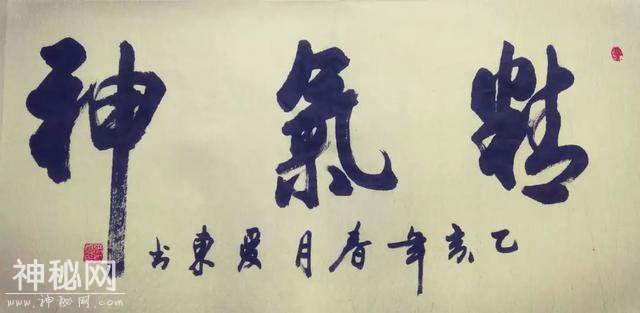 精氣神
乙亥年春月爱東书
神秘网
www.神秘网.com